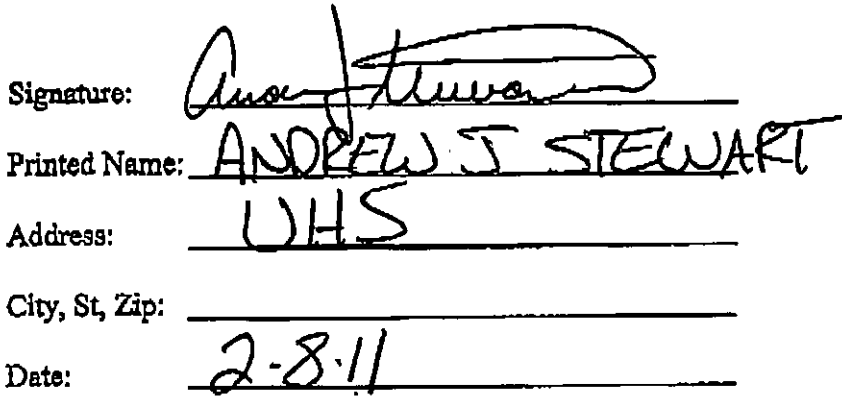 Signature:
Printed Name: ANDREW J STEWART
Address: UHS
City, St, Zip:
Date: 2-8-11